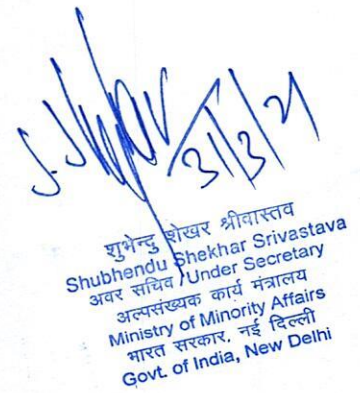 31/3/21
शुभेन्दु शेखर श्रीवास्तव
Shubhendu Shekhar Srivastava
अवर सचिव / Under Secretary
अल्पसंख्यक कार्य मंत्रालय
Ministry of Minority Affairs
भारत सरकार, नई दिल्ली
Govt. of India, New Delhi